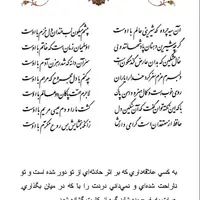 آن سیه چرده که شیرینی عالم با اوست چشم میگون لب خندان دل خرم با اوست
گرچه شیرین دهنان پادشهانند ولی او سلیمان زمان است که خاتم با اوست
خال مشکین که بدان عارض گندمگون است سر آن دانه که شد رهزن آدم با اوست
دلبرم عزم سفر کرد خدا را یاران چه کنم با دل مجروح که مرهم با اوست
روی خوب است و کمال هنر و دامن پاک لاجرم همت پاکان دو عالم با اوست
با که این نکته توان گفت که آن سنگین دل کشت ما را و دم عیسی مریم با اوست
حافظ از معتقدان است گرامی دارش زانکه بخشایش بس روح مکرم با اوست
به کسي علاقه‌داري که بر اثر حادثه‌اي از تو دور شده است و تو
ناراحت شده‌اي و نمي‌داني دردت را با که در ميان بگذاري.